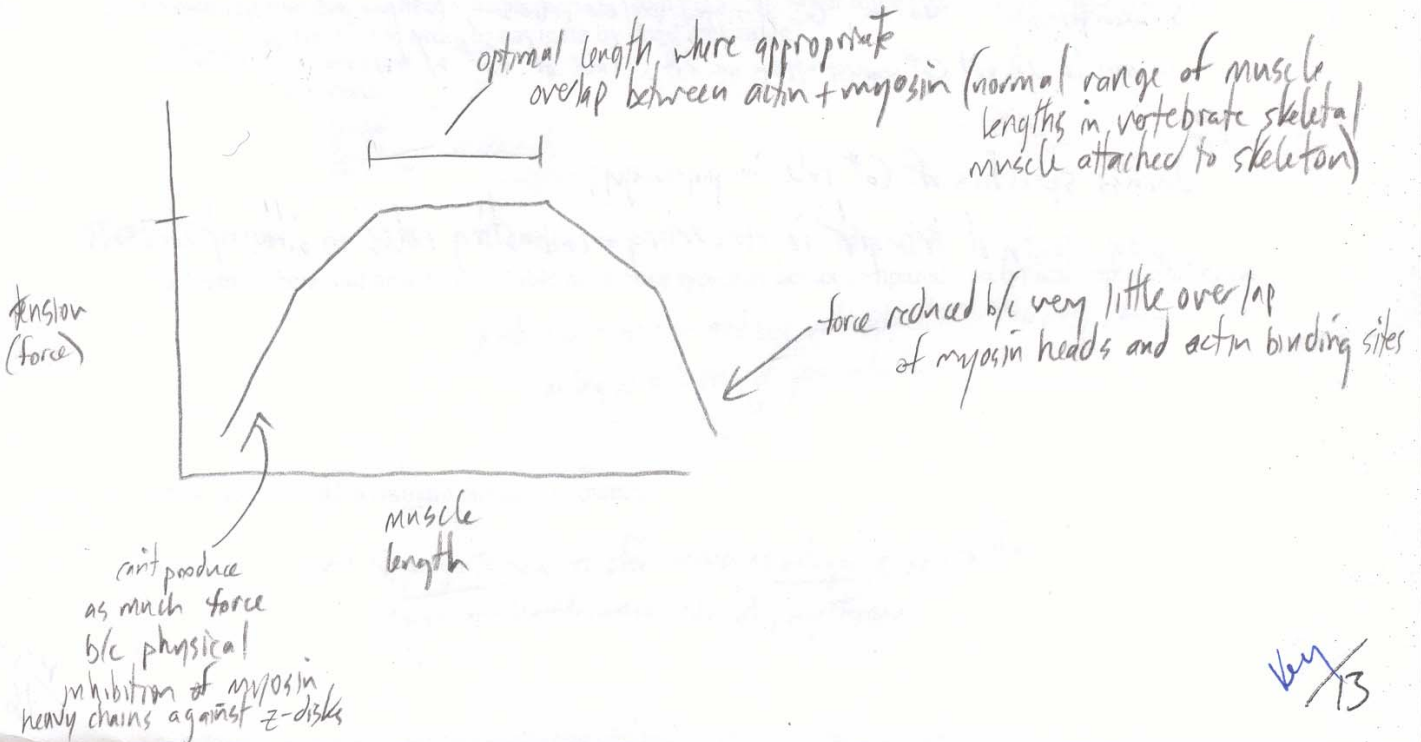 optimal length, where appropriate
overlap between actin + myosin (normal range of muscle
lengths in vertebrate skeletal
muscle attached to skeleton)
tension
(force)
force reduced b/c very little overlap
of myosin heads and actin binding sites
muscle
length
can't produce
as much force
b/c physical
inhibition of myosin
heavy chains against z-disks
Key
/13